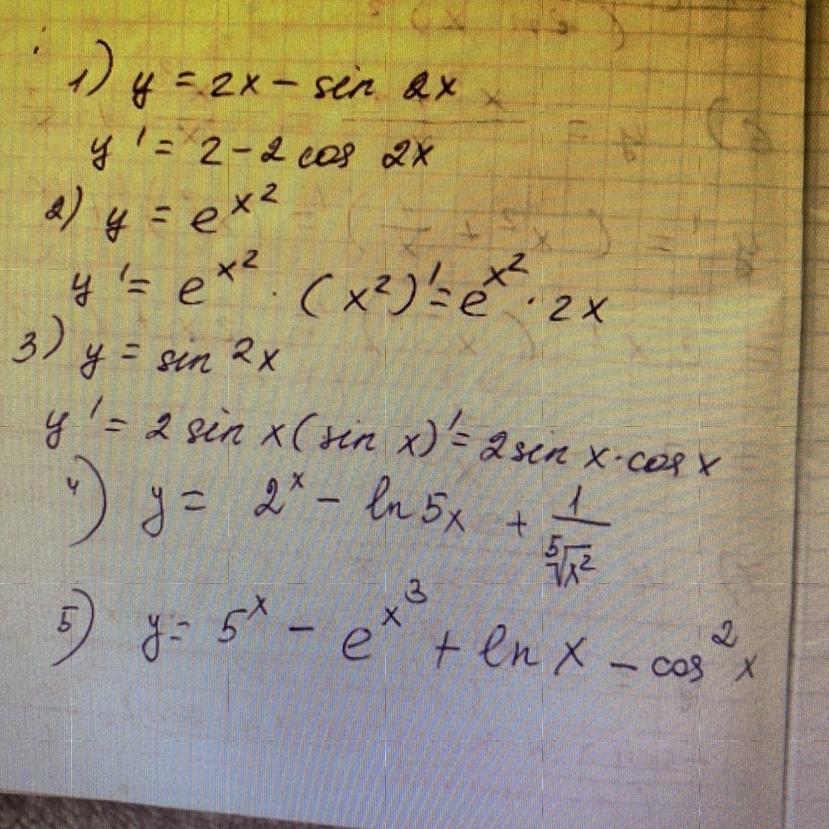 1) y = 2x - sin 2x
y' = 2 - 2 cos 2x
2) y = e^{x^2}
y' = e^{x^2} · (x^2)' = e^{x^2} · 2x
3) y = sin ^2 x
y' = 2 sin x (sin x)' = 2 sin x · cos x
4) y = 2^x - ln 5x + \frac{1}{\sqrt[5]{x^2}}
5) y = 5^x - e^{x^3} + ln x - cos^2 x